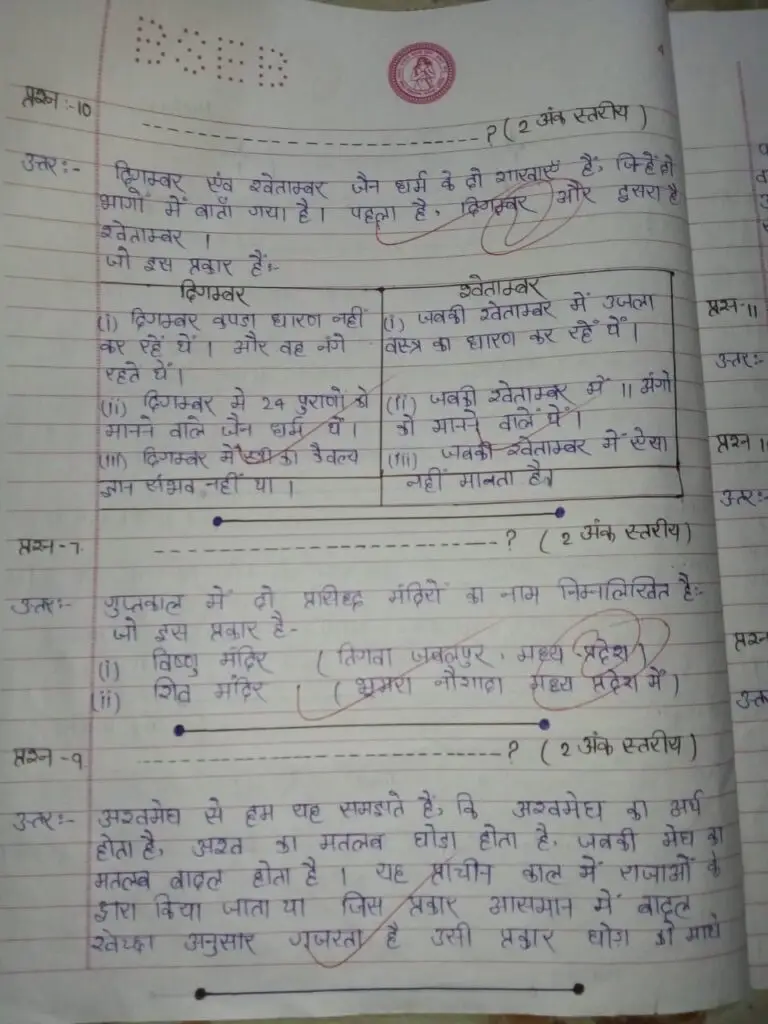 BSEB
प्रश्न :-10
------------------------------? (2 अंक स्तरीय)
उत्तर:- दिगम्बर एवं श्वेताम्बर जैन धर्म के दो शाखाएँ हैं, जिन्हें दो
भागों में बाटाँ गया है। पहला है, दिगम्बर और दुसरा है
श्वेताम्बर ।
जो इस प्रकार हैं:-
दिगम्बर
(i) दिगम्बर कपड़ा धारण नहीं
कर रहें थें । और वह नंगे
रहते थें।
(ii) दिगम्बर मे 24 पुराणों को
मानने वाले जैन धर्म थें।
(iii) दिगम्बर में स्त्री का कैवल्य
ज्ञान संभव नहीं था ।
श्वेताम्बर
(i) जबकी श्वेताम्बर में उजला
वस्त्र का धारण कर रहें थें ।
(ii) जबकी श्वेताम्बर में 11 अंगो
को मानने वालें थें।
(iii) जबकी श्वेताम्बर में ऐसा
नहीं मानता है।
प्रश्न -7.
------------------------? (2 अंक स्तरीय)
उत्तर:- गुप्तकाल में दो प्रसिध्द मंदिरों का नाम निम्नलिखित है:-
जो इस प्रकार है-
(i) विष्णु मंदिर (तिगवा जबलपुर, मध्य प्रदेश)
(ii) शिव मंदिर (भूमरा नौगाढ़ा मध्य प्रदेश में)
प्रश्न -9
------------------------------? (2 अंक स्तरीय)
उत्तर:- अश्वमेघ से हम यह समझते हैं, कि अश्वमेघ का अर्थ
होता है, अश्व का मतलब घोडा होता है, जबकी मेघ का
मतलब बादल होता है । यह प्राचीन काल में राजाओं के
द्वारा किया जाता था जिस प्रकार आसमान में बादल
स्वेच्छा अनुसार गुजरता है उसी प्रकार घोड़ा को माथे
प्रश्न -11
उत्तर:-
प्रश्न 1
उत्तर:-
प्रश्न
उत्त